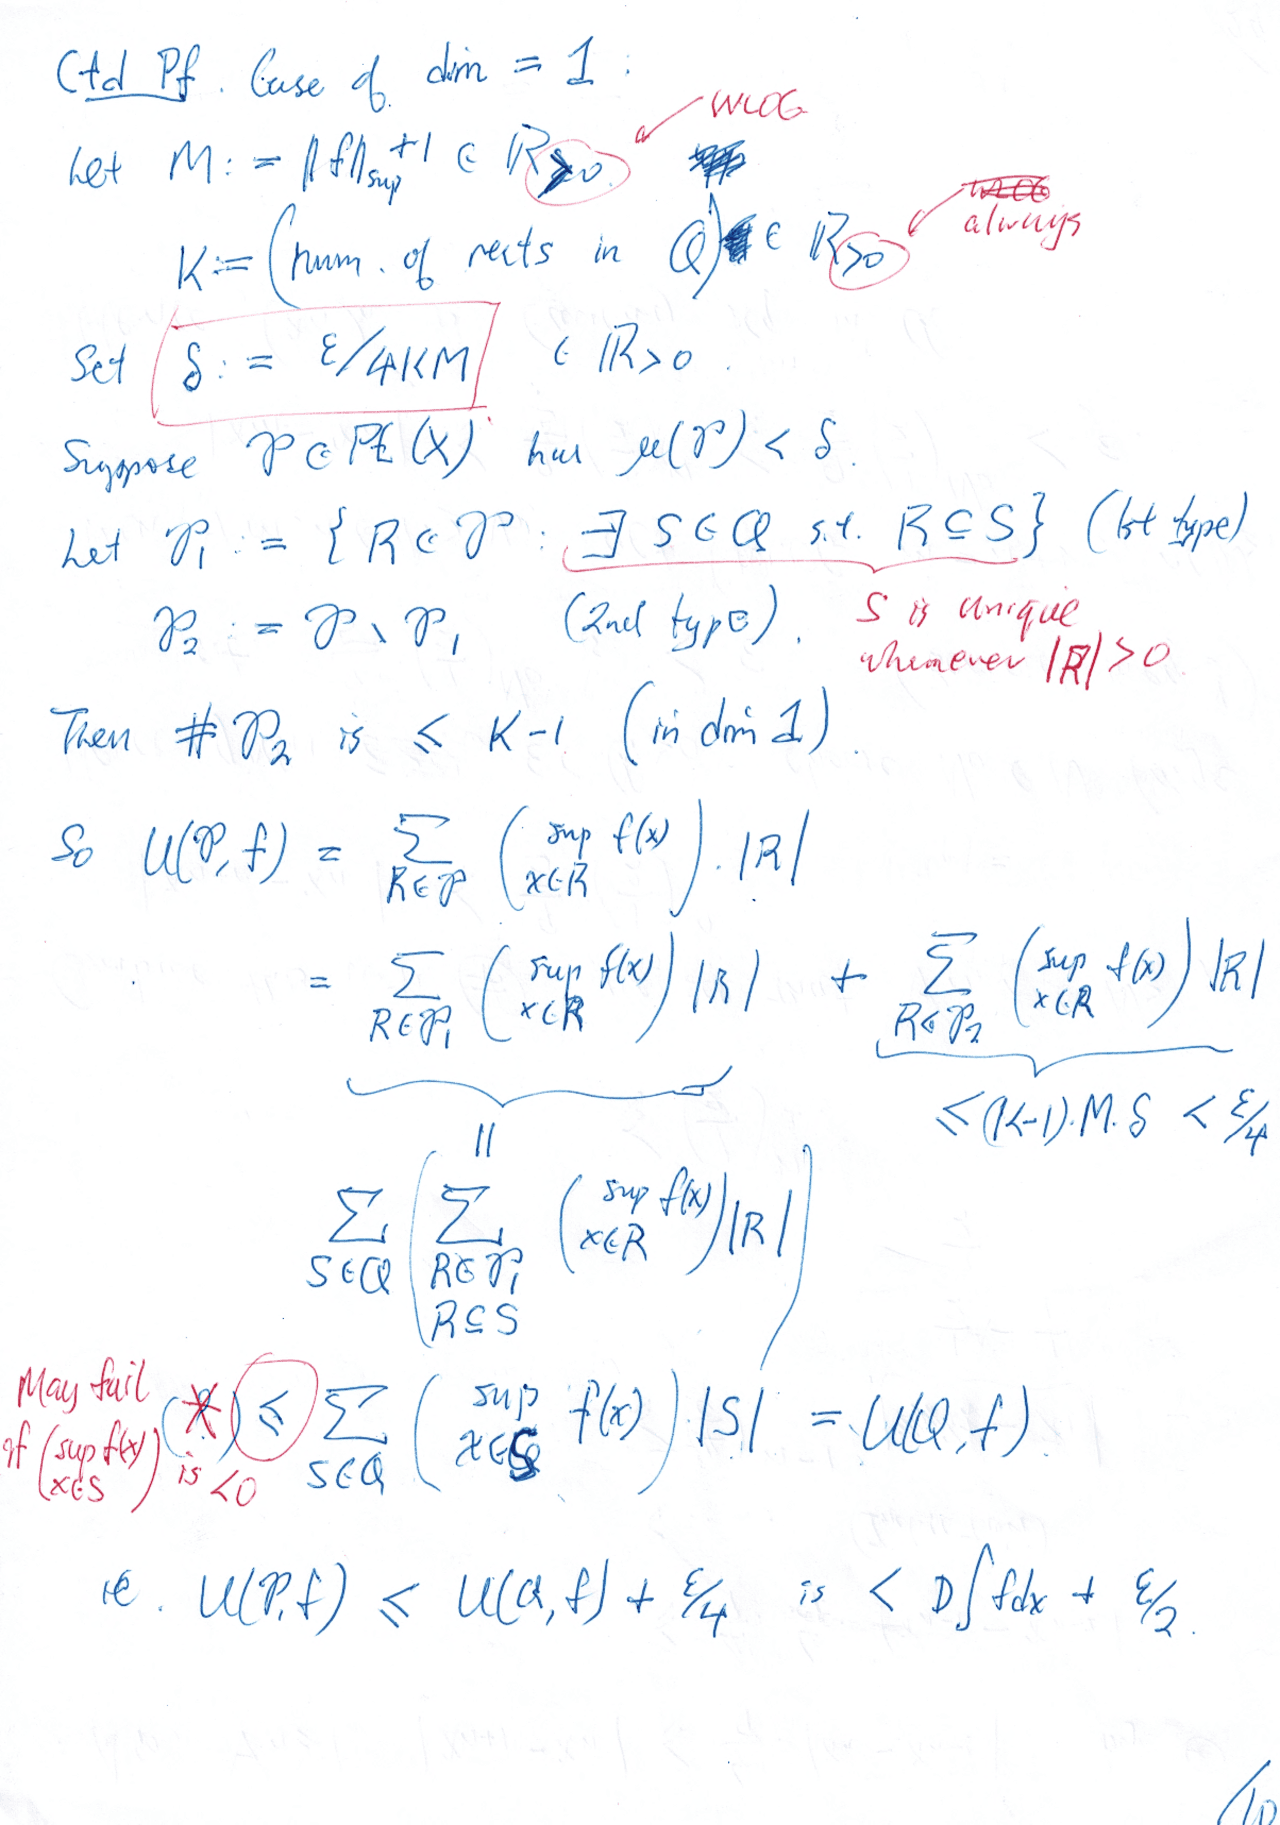 Ctd Pf. Case of dim = 1 :
WLOG
Let M := ‖f‖sup +1 ∈ ℝ>0.
K := (num. of rects in Q) ∈ ℝ>0
always
Set δ := ε/4KM ∈ ℝ>0.
Suppose 𝒫 ∈ PE(X) has μ(𝒫) < δ.
Let 𝒫₁ := { R ∈ 𝒫 : ∃ S ∈ Q s.t. R ⊆ S } (1st type)
𝒫₂ := 𝒫 \ 𝒫₁ (2nd type).
S is unique
whenever |R| > 0
Then # 𝒫₂ is ≤ K-1 (in dim 1).
So U(𝒫, f) = ∑_{R∈𝒫} (sup_{x∈R} f(x)) · |R|
= ∑_{R∈𝒫₁} (sup_{x∈R} f(x)) |R| + ∑_{R∈𝒫₂} (sup_{x∈R} f(x)) |R|
≤ (K-1)·M·δ < ε/4
||
∑_{S∈Q} ( ∑_{R∈𝒫₁ R⊆S} (sup_{x∈R} f(x)) |R| )
May fail
if (sup_{x∈S} f(x)) is <0
≤ ∑_{S∈Q} (sup_{x∈S} f(x)) · |S| = U(Q, f).
ie. U(𝒫, f) ≤ U(Q, f) + ε/4 is < D∫f dx + ε/2.
10